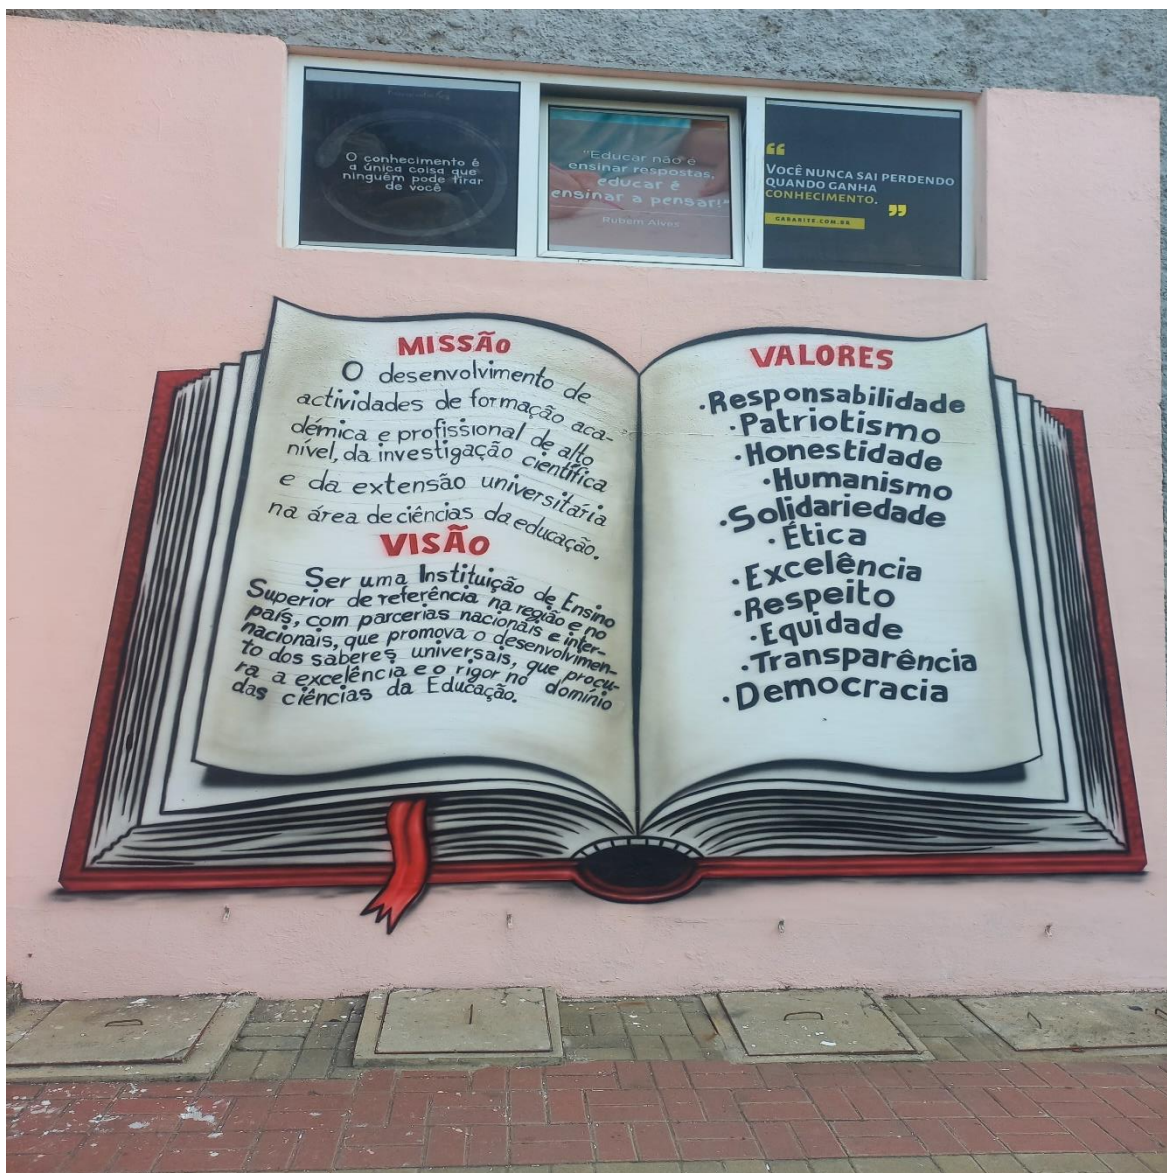 O conhecimento é
a única coisa que
ninguém pode tirar
de você
"Educar não é
ensinar respostas,
educar é
ensinar a pensar!"
Rubem Alves
“
VOCÊ NUNCA SAI PERDENDO
QUANDO GANHA
CONHECIMENTO.
”
GABARITE.COM.BR
MISSÃO
O desenvolvimento de
actividades de formação aca-
démica e profissional de alto
nível, da investigação científica
e da extensão universitária
na área de ciências da educação.
VISÃO
Ser uma Instituição de Ensino
Superior de referência na região e no
país, com parcerias nacionais e inter-
nacionais, que promova o desenvolvimen-
to dos saberes universais, que procu-
ra a excelência e o rigor no domínio
das ciências da Educação.
VALORES
·Responsabilidade
·Patriotismo
·Honestidade
·Humanismo
·Solidariedade
·Ética
·Excelência
·Respeito
·Equidade
·Transparência
·Democracia